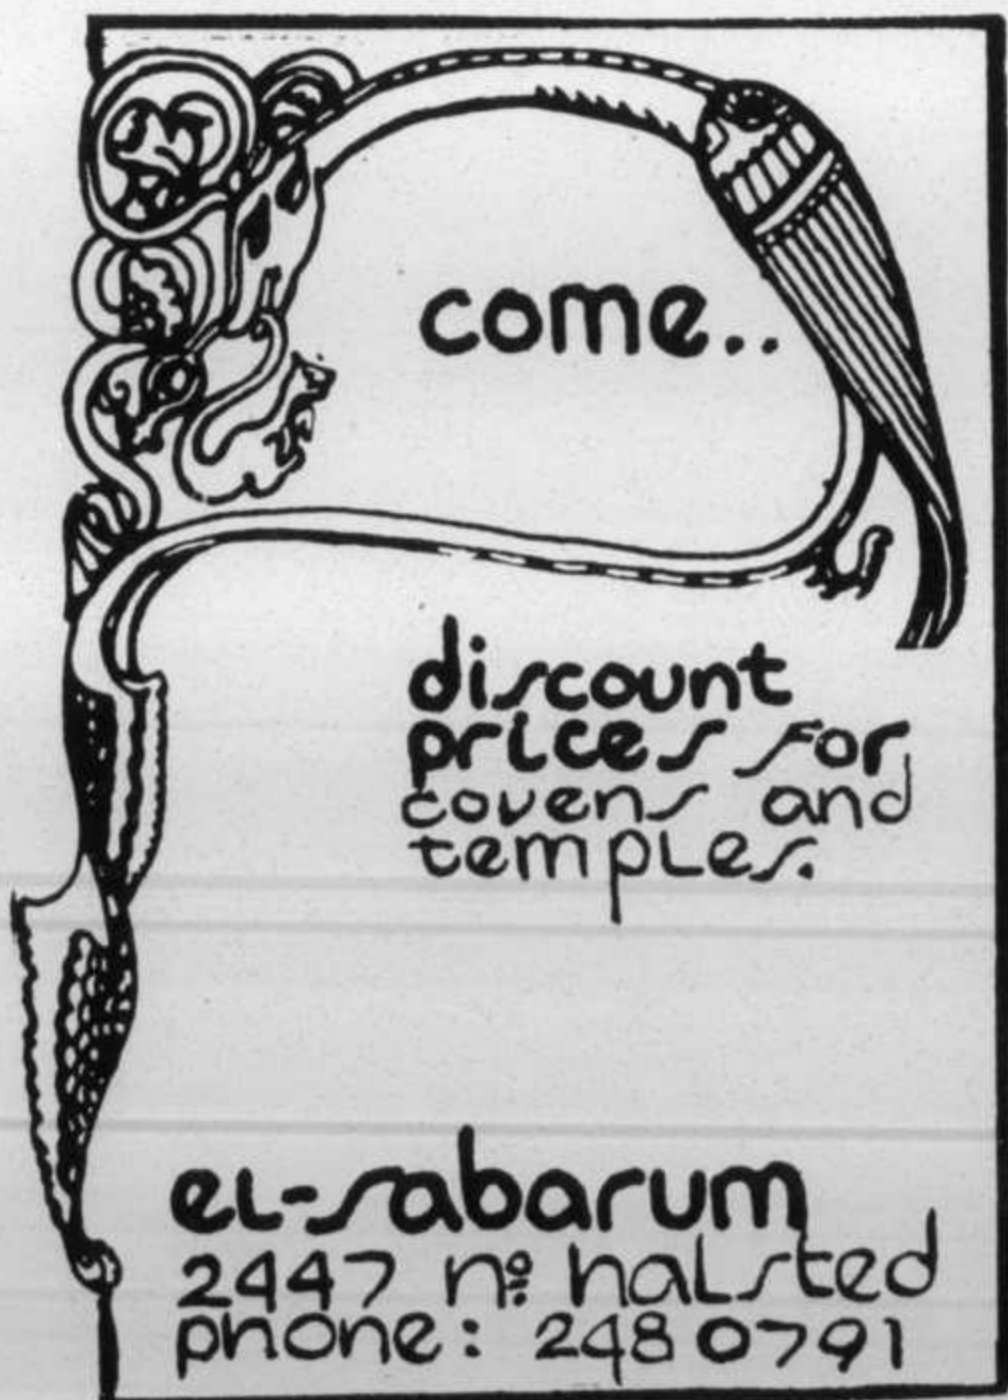 come..
discount
prices for
covens and
temples.
el-sabarum
2447 nº halsted
phone: 248 0791